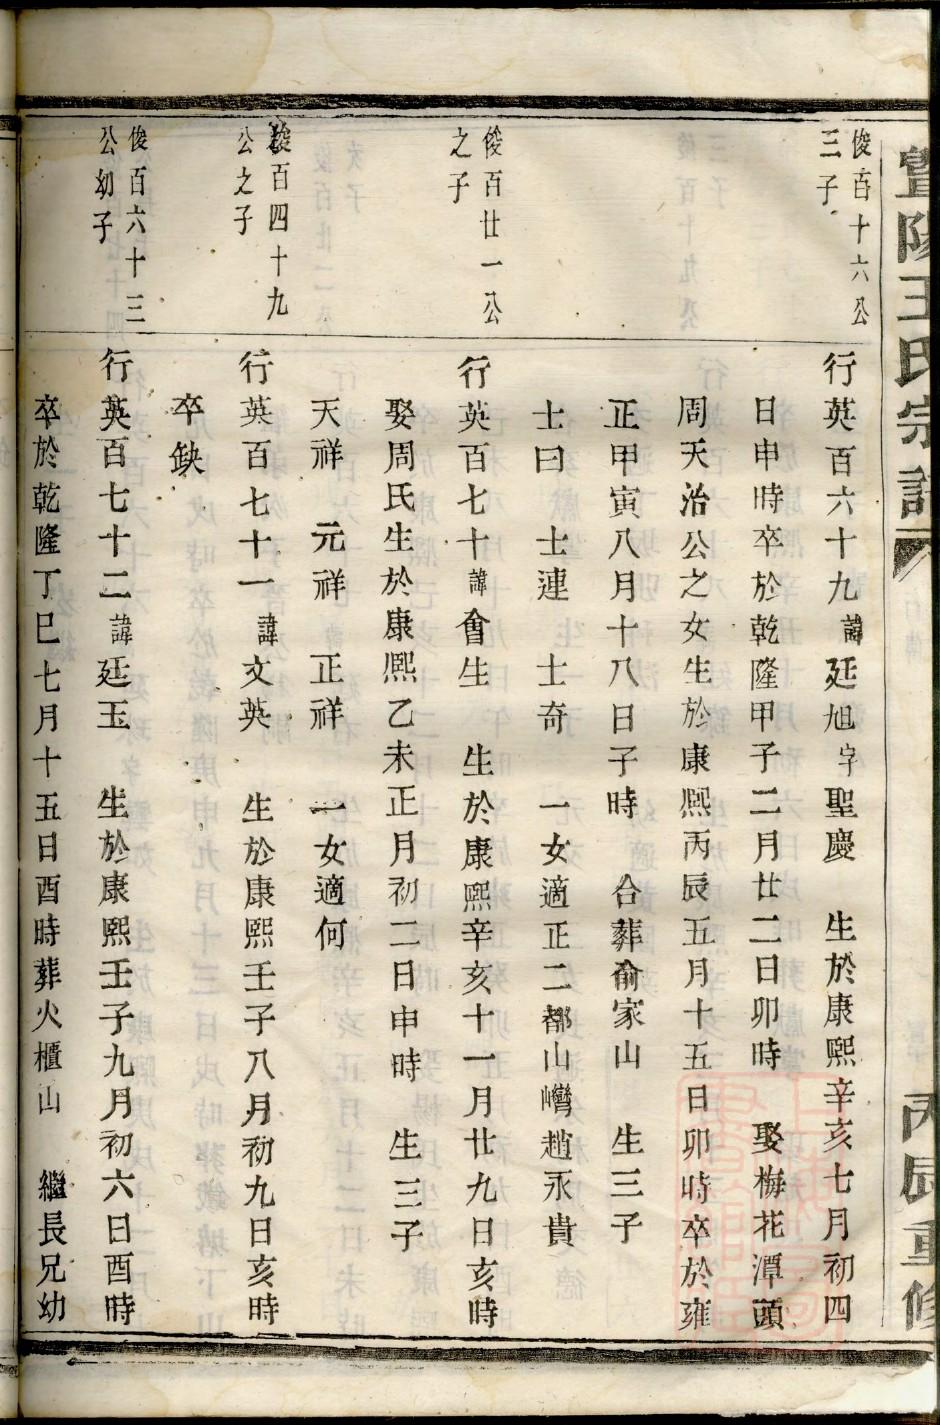 暨陽王氏宗譜
丙辰重修
俊百十六公
三子
行英百六十九諱廷旭字聖慶 生於康熙辛亥七月初四
日申時卒於乾隆甲子二月廿二日卯時 娶梅花潭頭
周天治公之女生於康熙丙辰五月十五日卯時卒於雍
正甲寅八月十八日子時 合葬俞家山 生三子
士曰 士連 士奇 一女適正二都山巒趙永貴
俊百廿一公
之子
行英百七十諱會生 生於康熙辛亥十一月廿九日亥時
娶周氏生於康熙乙未正月初二日申時 生三子
天祥 元祥 正祥 一女適何
俊百四十九
公之子
行英百七十一諱文英 生於康熙壬子八月初九日亥時
卒缺
俊百六十三
公幼子
行英百七十二諱廷玉 生於康熙壬子九月初六日酉時
卒於乾隆丁巳七月十五日酉時葬火櫃山 繼長兄幼